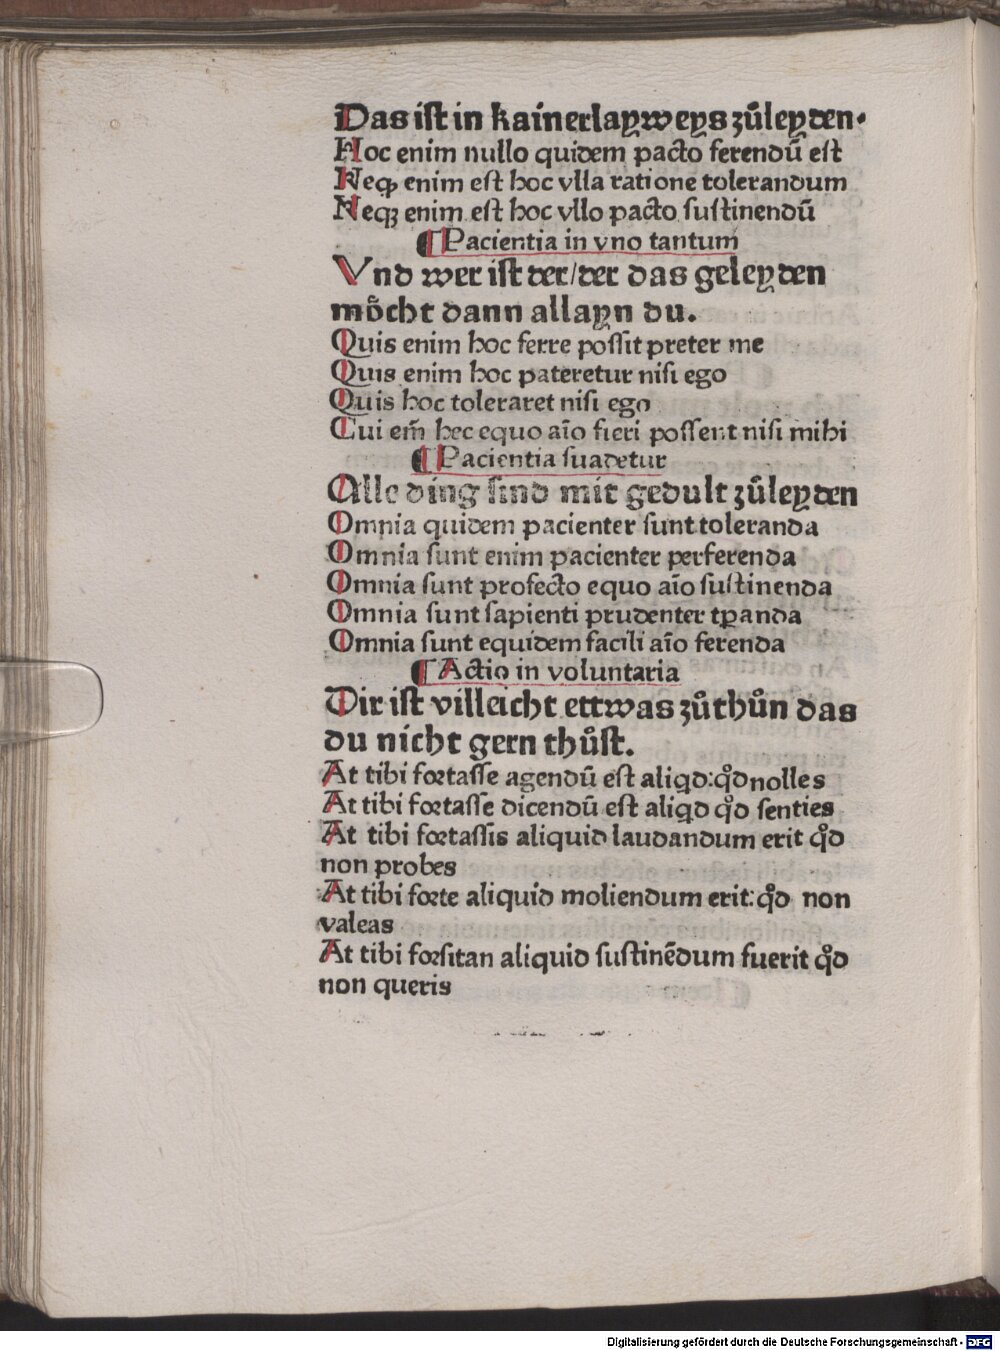 Das ist in kainerlayweys zůleyden.
Hoc enim nullo quidem pacto ferendū est
Neqꝫ enim est hoc vlla ratione tolerandum
Neqꝫ enim est hoc vllo pacto sustinendū
¶ Pacientia in vno tantum
Vnd wer ist der/der das geleyden
moͤcht dann allayn du.
Quis enim hoc ferre possit preter me
Quis enim hoc pateretur nisi ego
Quis hoc toleraret nisi ego
Cui em̄ hec equo aīo fieri possent nisi mihi
¶ Pacientia suadetur
Alle ding sind mit gedult zůleyden
Omnia quidem pacienter sunt toleranda
Omnia sunt enim pacienter perferenda
Omnia sunt profecto equo aīo sustinenda
Omnia sunt sapienti prudenter tꝑanda
Omnia sunt equidem facili aīo ferenda
¶ Actio in voluntaria
Dir ist villeicht ettwas zůthůn das
du nicht gern thůst.
At tibi fortasse agendū est aliqd:qͦd nolles
At tibi fortasse dicendū est aliqd qͦd senties
At tibi fortassis aliquid laudandum erit qͦd
non probes
At tibi forte aliquid moliendum erit:qͦd non
valeas
At tibi forsitan aliquid sustinēdum fuerit qͦd
non queris
Digitalisierung gefördert durch die Deutsche Forschungsgemeinschaft - DFG